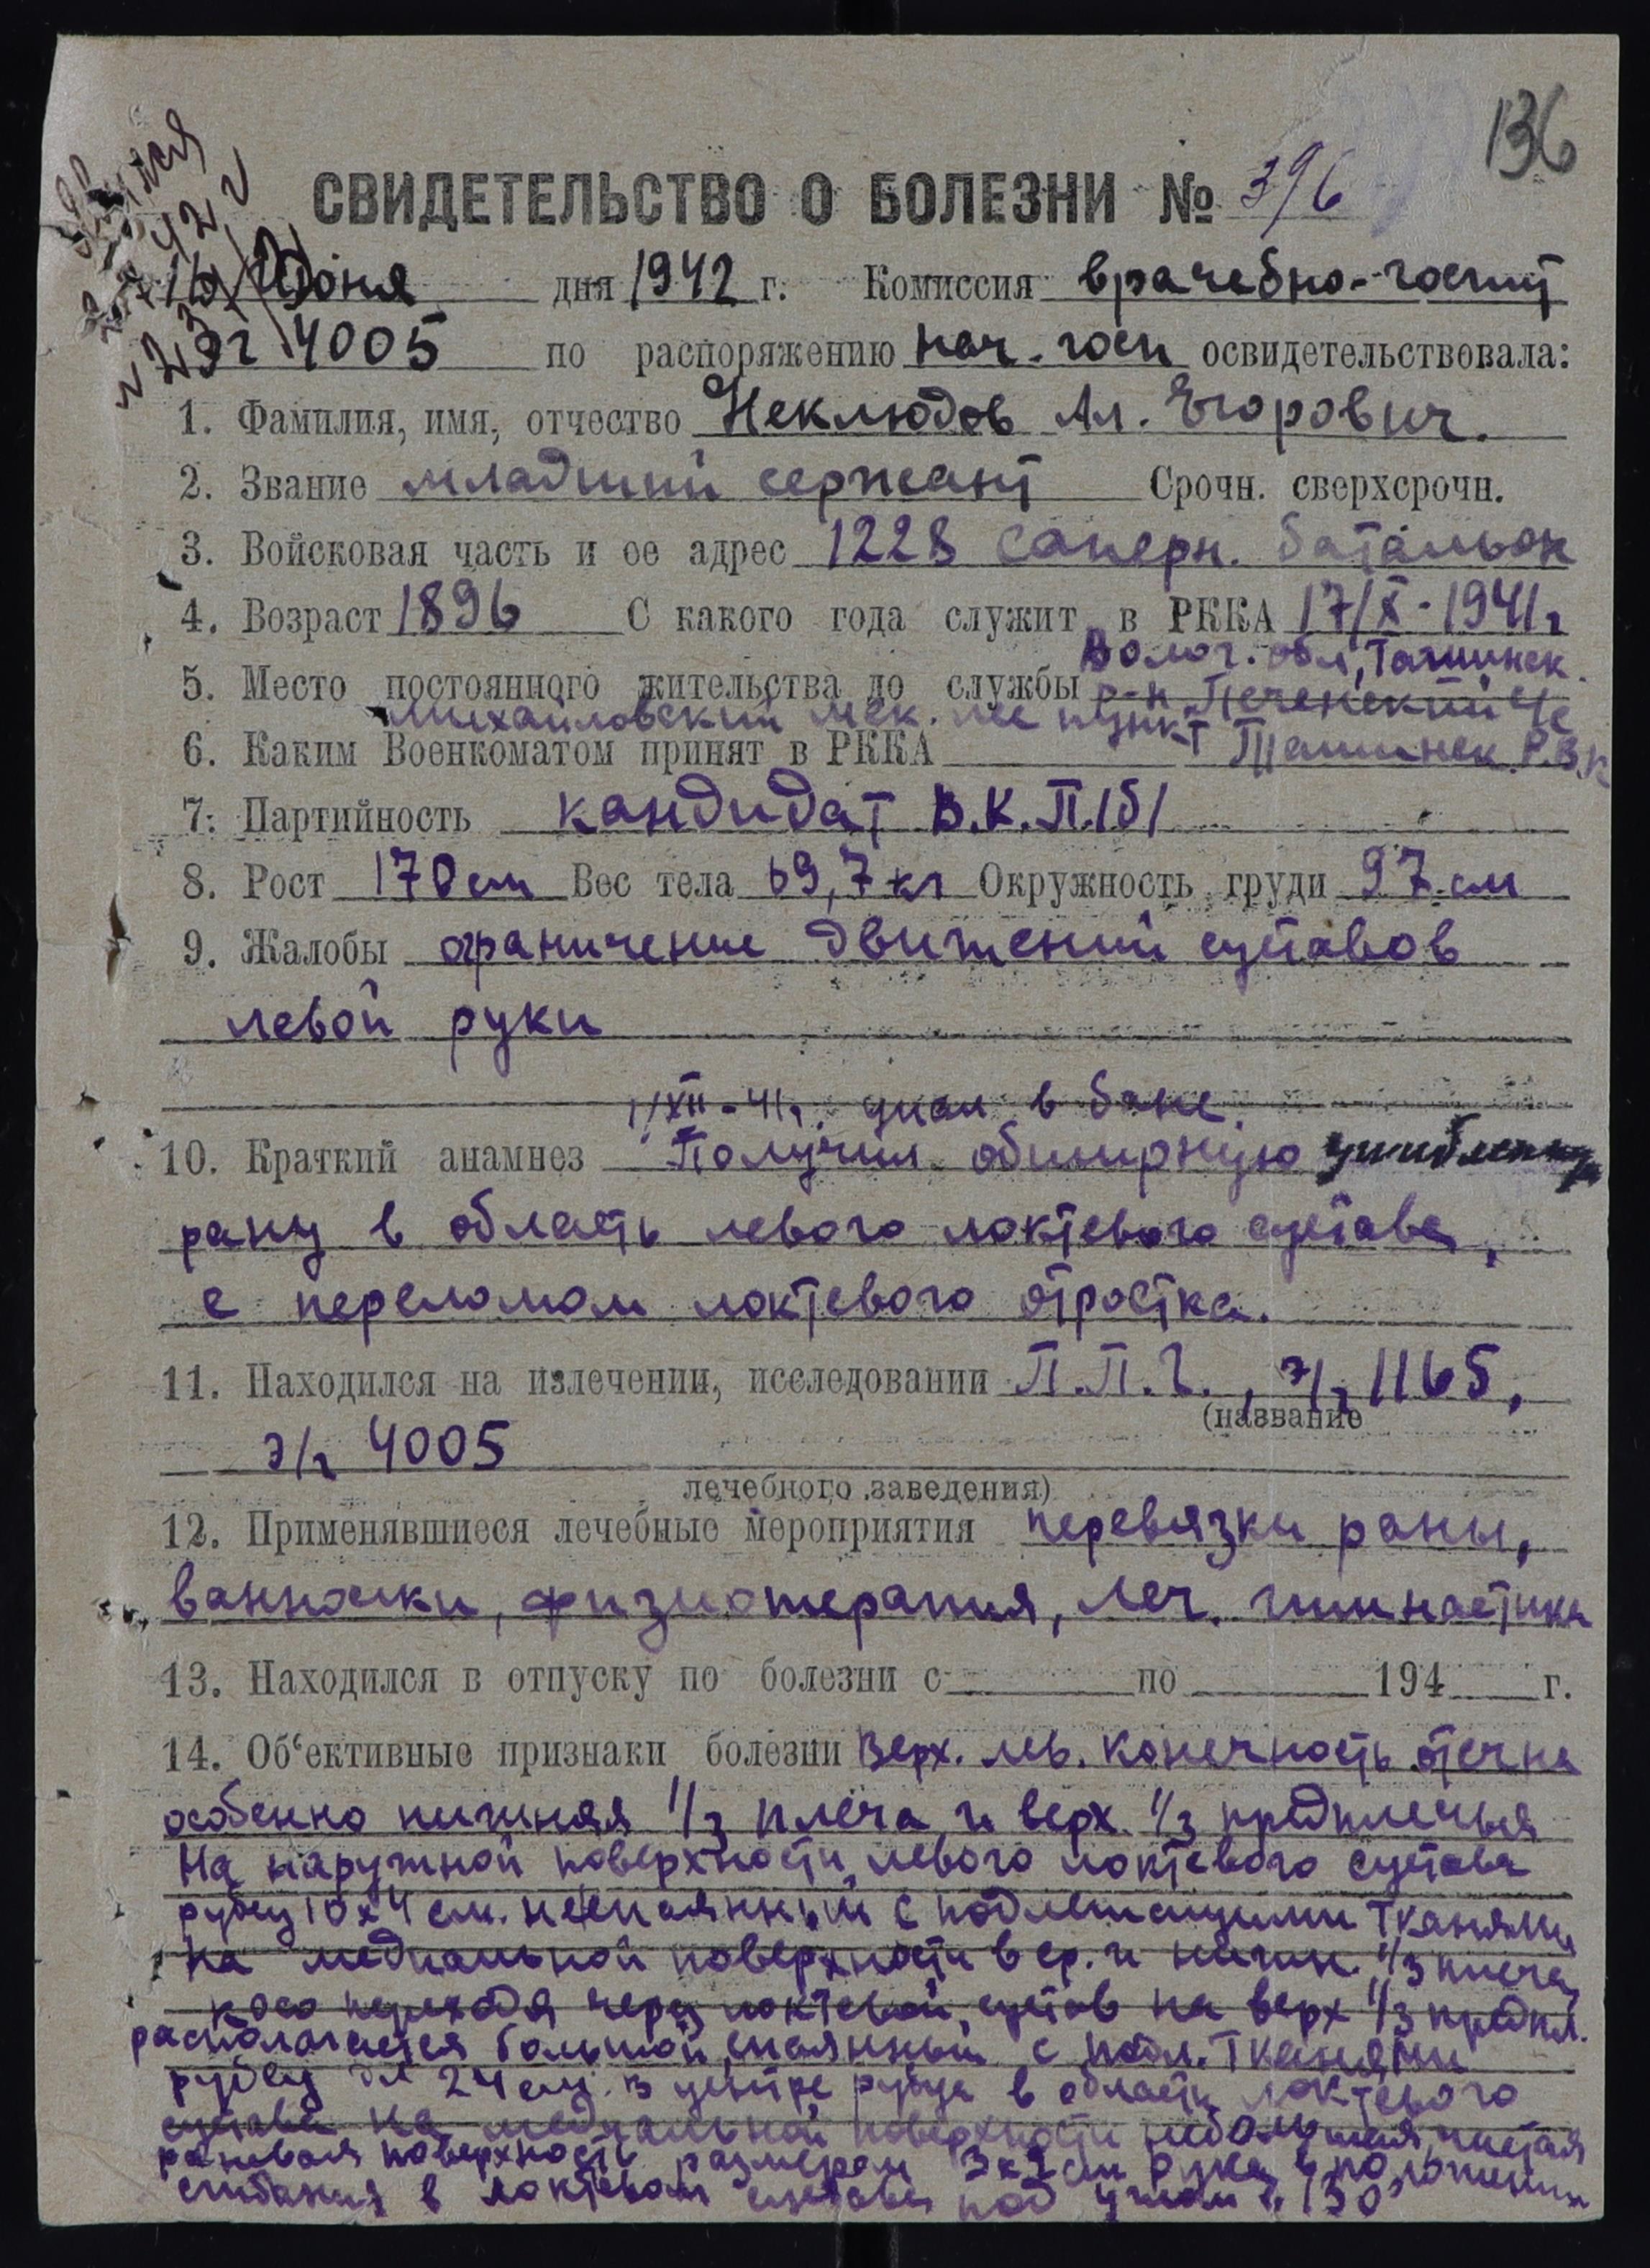 136
СВИДЕТЕЛЬСТВО О БОЛЕЗНИ № 396
16 Июня дня 1942 г. Комиссия врачебно-госпит
эг 4005 по распоряжению нач. госп освидетельствовала:
1. Фамилия, имя, отчество Неклюдов Ал. Егорович.
2. Звание младший сержант Срочн. сверхсрочн.
3. Войсковая часть и ее адрес 1228 саперн. батальон
4. Возраст 1896 С какого года служит в РККА 17/X-1941г
Волог. обл, Тотминск.
5. Место постоянного жительства до службы р-н Печенский с/с
Михайловский мех. лес пункт
6. Каким Военкоматом принят в РККА Р.В.К
7. Партийность кандидат В.К.П./б/
8. Рост 170 см Вес тела 69,7 кг Окружность груди 97 см
9. Жалобы ограничение движений суставов
левой руки
1/XII-41г. упал в бане.
10. Краткий анамнез Получил обширную ушибленную
рану в область левого локтевого сустава,
с переломом локтевого отростка.
11. Находился на излечении, исследовании П.П.Г., э/г 1165,
(название
э/г 4005
лечебного заведения)
12. Применявшиеся лечебные мероприятия перевязки раны,
ванночки, физиотерапия, леч. гимнастика
13. Находился в отпуску по болезни с по 194 г.
14. Об‘ективные признаки болезни Верх. лев. конечность отечна
особенно нижняя 1/3 плеча и верх. 1/3 предплечья
На наружной поверхности левого локтевого сустава
рубец 10х4 см. неспаянный с подлежащими тканями
на медиальной поверхности в ср. и нижн. 1/3 плеча,
косо переходя через локтевой сустав на верх 1/3 предпл.
располагается большой спаянный с подл. тканями
рубец дл 24 см. В центре рубца в области локтевого
сустава на медиальной поверхности небольшая, чистая
раневая поверхность размером 3х2 см рука в положении
сгибания в локтевом суставе под углом в 130°